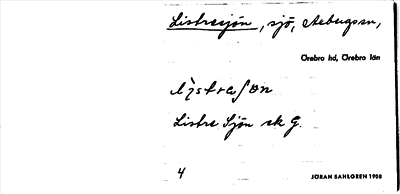 Listresjön, sjö, Axbergs sn,
Örebro hd, Örebro län
Listre Sjön ek G.
4 JÖRAN SAHLGREN 1908